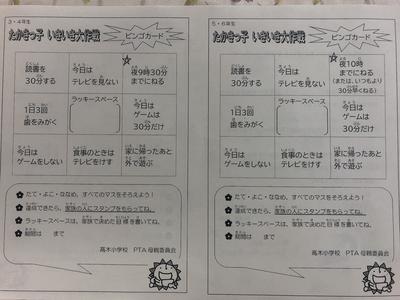 3・4年生
たかきっ子 いきいき大作戦 ビンゴカード
読書を
30分する
今日は
テレビを見ない
☆
夜9時30分
までにねる
1日3回
歯をみがく
ラッキースペース
今日は
ゲームは
30分だけ
今日は
ゲームをしない
食事のときは
テレビをけす
家に帰ったあと
外で遊ぶ
たて・よこ・ななめ、すべてのマスをそろえよう!
達成できたら、家族の人にスタンプをもらってね。
ラッキースペースは、家族で決めた目標を書いてね。
期間は まで
高木小学校 PTA母親委員会
5・6年生
たかきっ子 いきいき大作戦 ビンゴカード
読書を
30分する
今日は
テレビを見ない
☆
夜10時
までにねる
(または、いつもより
30分早くねる)
1日3回
歯をみがく
ラッキースペース
今日は
ゲームは
30分だけ
今日は
ゲームをしない
食事のときは
テレビをけす
家に帰ったあと
外で遊ぶ
たて・よこ・ななめ、すべてのマスをそろえよう!
達成できたら、家族の人にスタンプをもらってね。
ラッキースペースは、家族で決めた目標を書いてね。
期間は まで
高木小学校 PTA母親委員会